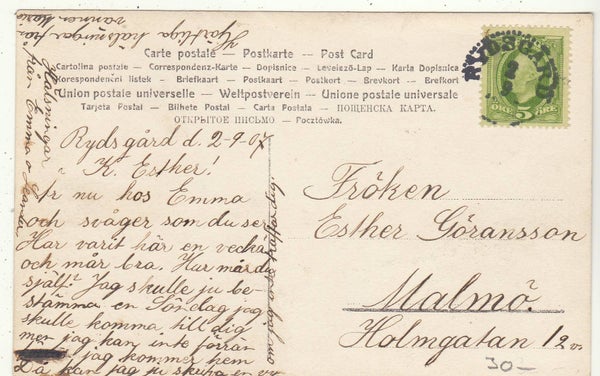 Carte postale – Postkarte – Post Card
Cartolina postale – Correspondenz-Karte – Dopisnice – Levelező-Lap – Karta Dopisnica
Korespondenční listek – Briefkaart – Postkaart – Postkort – Brevkort – Brefkort
Union postale universelle – Weltpostverein – Unione postale universale
Tarjeta Postal – Bilhete Postal – Carta Postala – ПОЩЕНСКА КАРТА.
ОТКРЫТОЕ ПИСЬМО – Pocztówka.
RYDSGÅRD
ÖRE 5 ÖRE
Rydsgård d. 2-9-07
K. Esther!
Är nu hos Emma
och svåger som du ser
Har varit här en vecka
och mår bra. Hur mår du
själf? Jag skulle ju be-
stämma en Söndag jag
skulle komma till dig
men jag kan inte förrän
jag kommer hem
Då kan jag ju skriva en
Hjärtliga hälsningar från
vännen
Hälsningar
från Emma o
Fröken
Esther Göransson
Malmö.
Holmgatan 12
30–